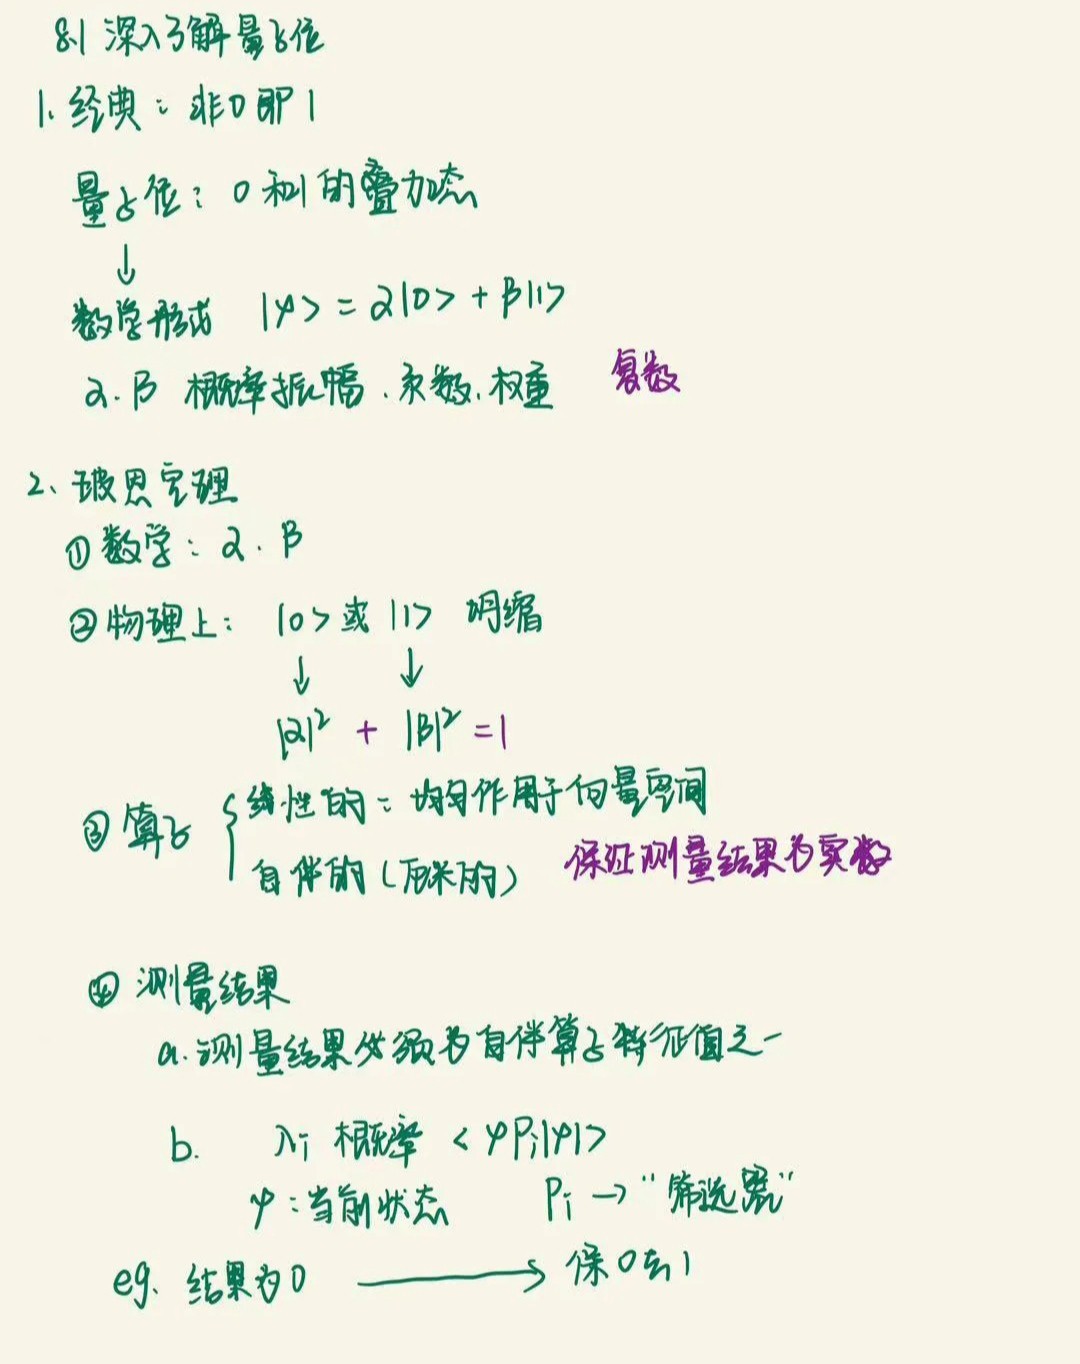 8.1 深入了解量子位
1. 经典：非0即1
量子位：0和1的叠加态
↓
数学形式 |ψ> = α|0> + β|1>
α.β 概率振幅.系数.权重 复数
2、玻恩定理
①数学：α.β
②物理上： |0>或|1> 坍缩
↓ ↓
|α|² + |β|² =1
③算子 { 线性的：均匀作用于向量空间
自伴的（厄米的） 保证测量结果为实数
④ 测量结果
a. 测量结果必须为自伴算子特征值之一
b. λi 概率 <ψPi|ψ|>
ψ：当前状态 Pi → “筛选器”
eg. 结果为0 → 保0去1